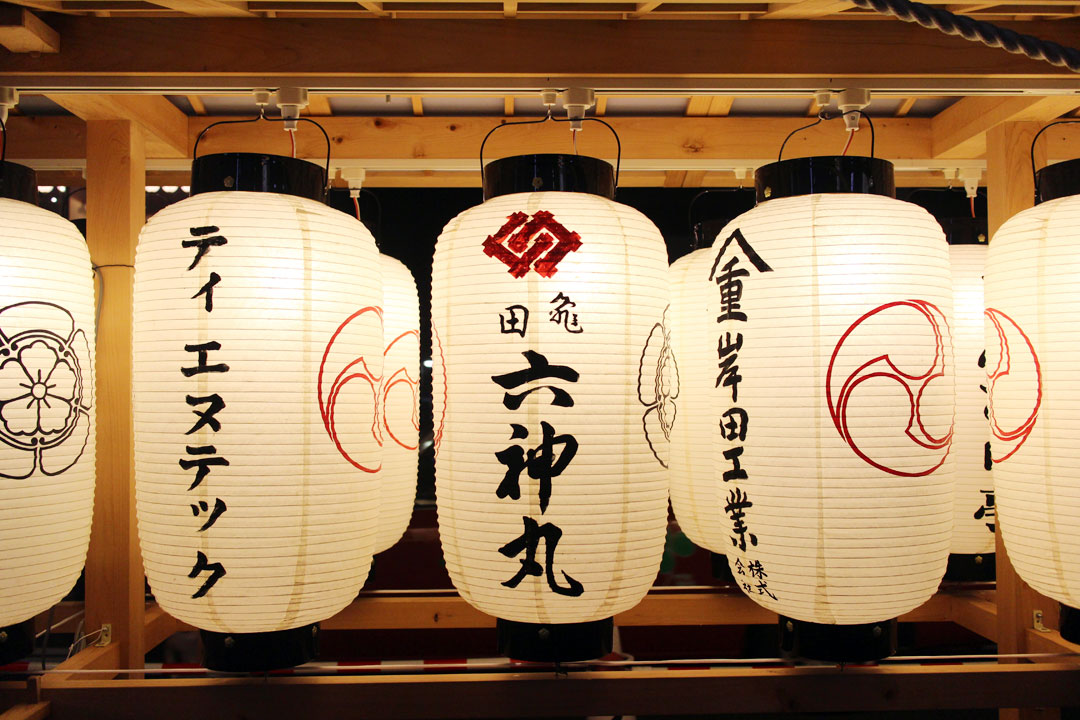 ティエヌテック
亀田
六神丸
重岸田工業株式会社